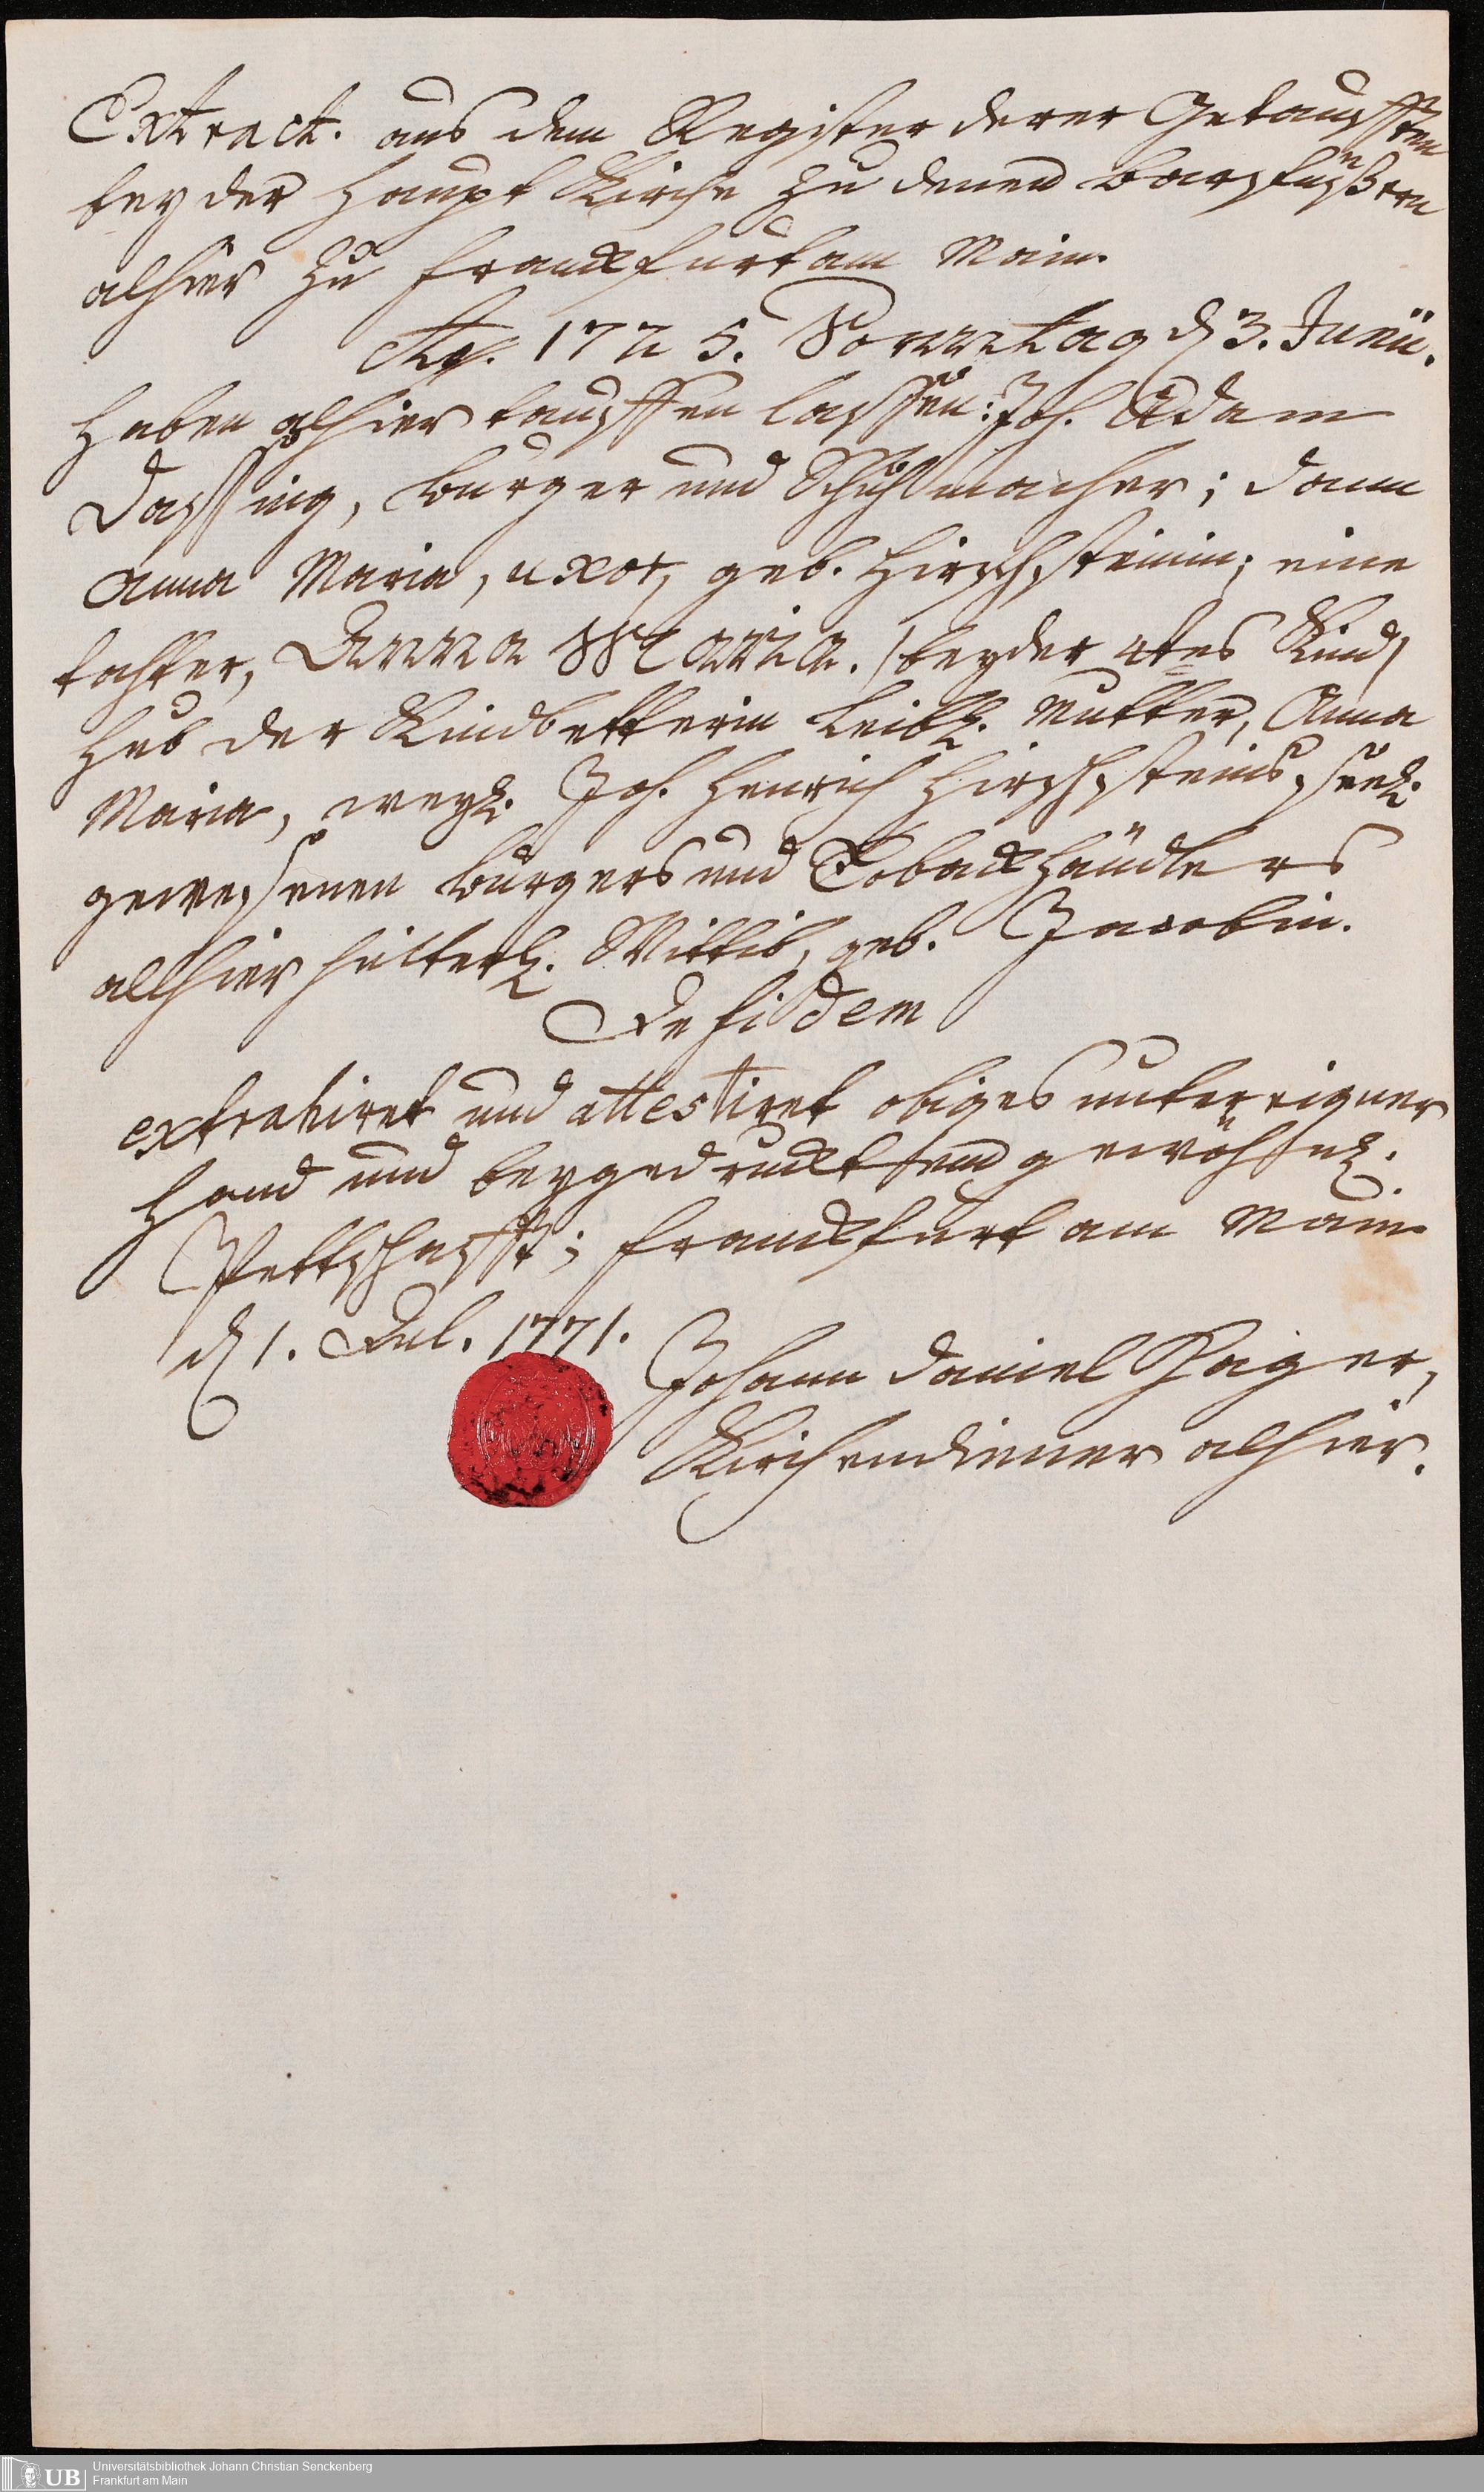 Extract. aus dem Register derer Getaufften
bey der Haupt Kirche zu denen Barfüßern
alhier zu Franckfurt am Main.
Ao. 1725. Sonntag d 3. Junii.
Haben alhier tauffen lassen: Joh. Adam
Dassing, burger und Schuhmacher; dann
Anna Maria, uxor, geb. Hirschsteinin; eine
tochter, Anna Maria. /beyder 4tes Kind/
Hub der Kindbetterin leibl. Mutter, Anna
Maria, weyl. Joh. Henrich Hirschsteins, seel.
gewesenen burgers und Toback händlers
allhier hinterl. Wittib, geb. Jacobin.
In fidem
extrahiret und attestiret obiges unter eigner
Hand und beygedrucktem gewöhnl.
Pettschafft; Franckfurt am Main
d 1. Jul. 1771.
Johann Daniel Hager,
Kirchendiener alhier.
UB
Universitätsbibliothek Johann Christian Senckenberg
Frankfurt am Main